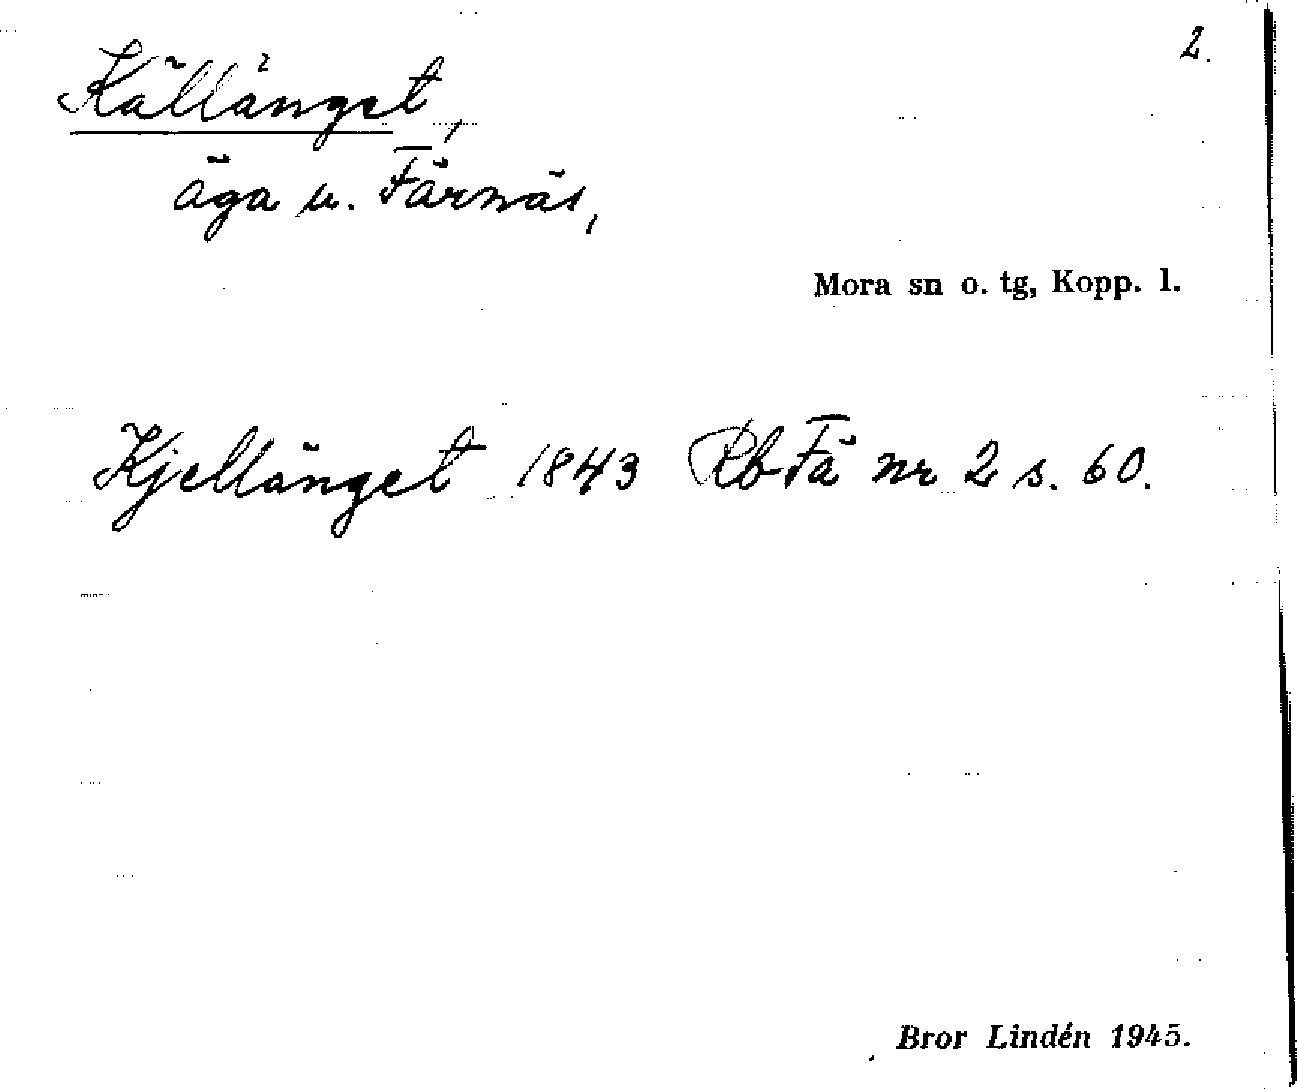 2.
Källänget,
äga u. Färnäs,
Mora sn o. tg, Kopp. l.
Kjellänget 1843 Rb Fä nr 2 s. 60.
Bror Lindén 1945.